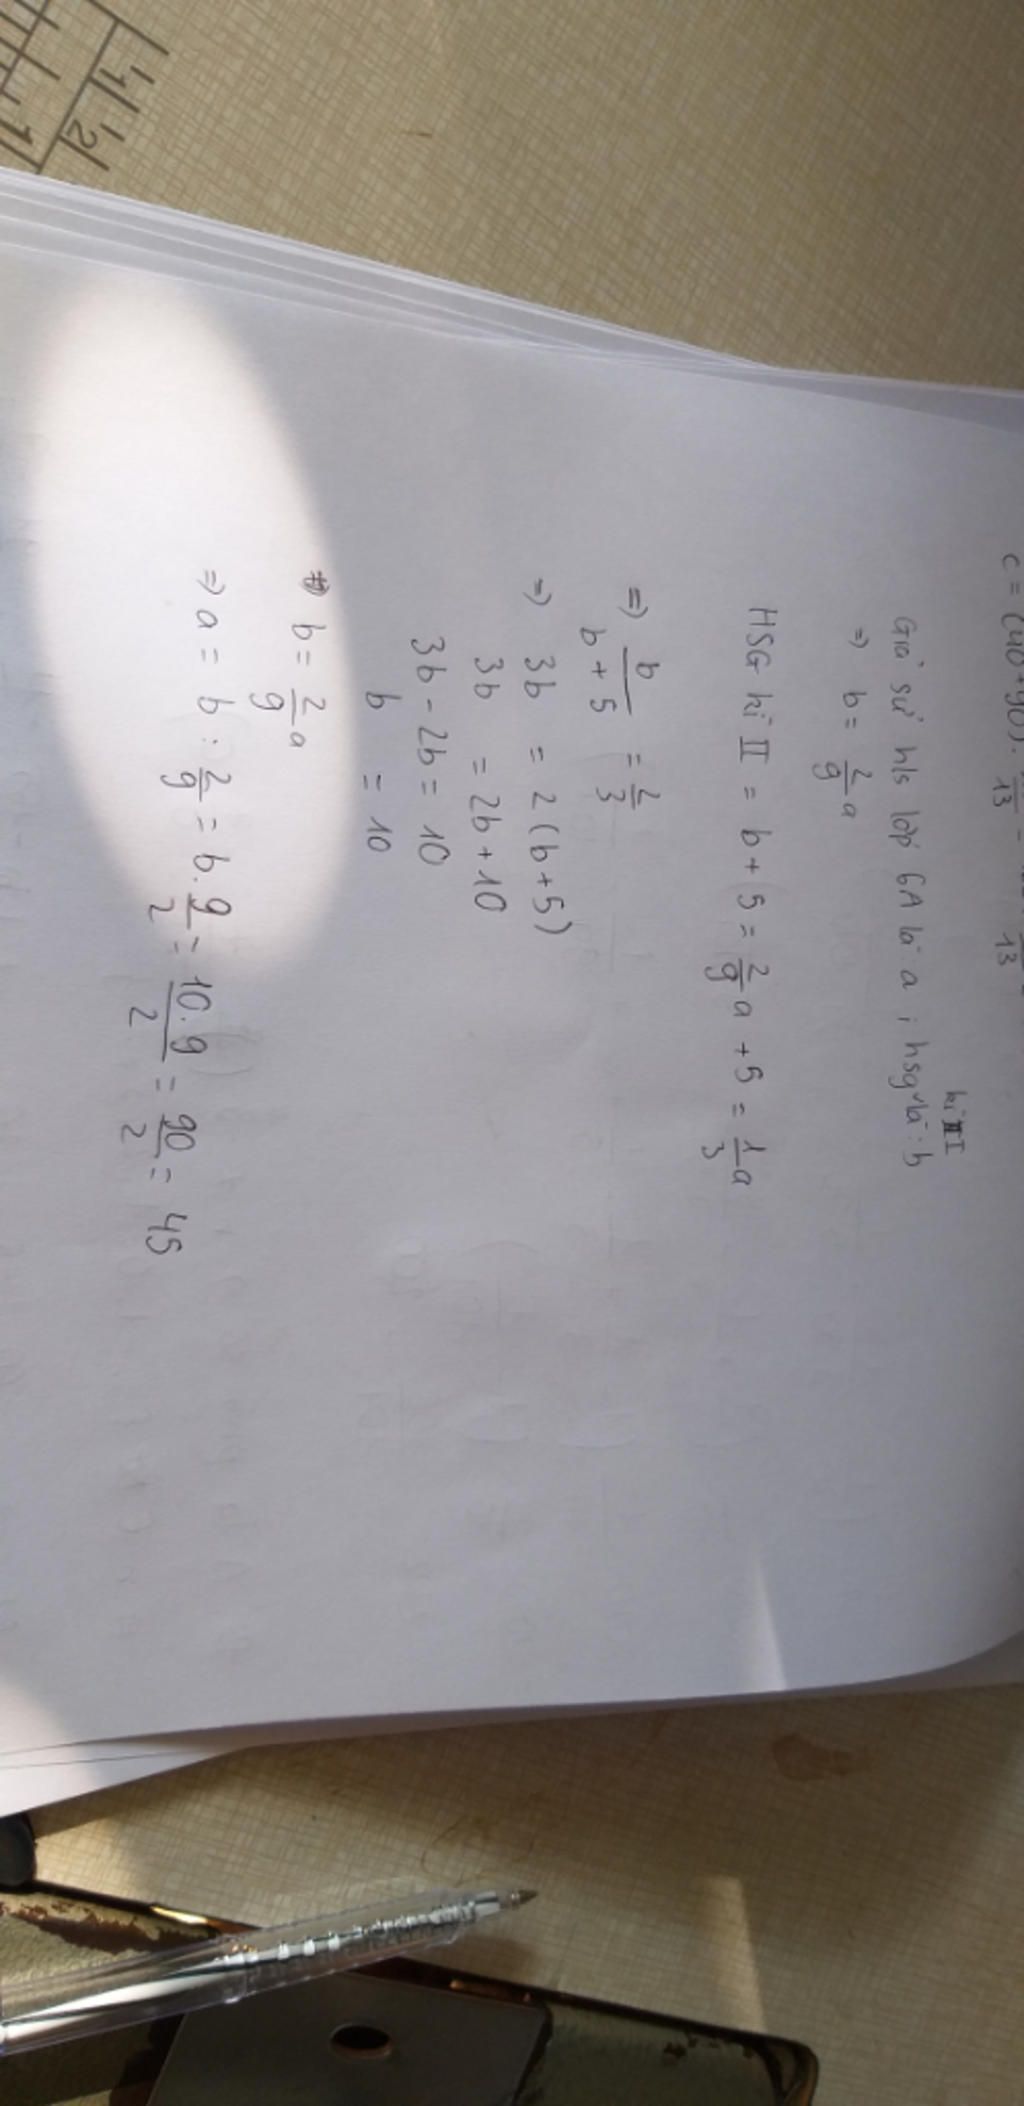 c = (40+90).
13
13
kì I
Giả sử h/s lớp 6A là: a ; hsg là: b
=> b = 2/9 a
HSG kì II = b + 5 = 2/9 a + 5 = 1/3 a
=> b/(b + 5) = 2/3
=> 3b = 2(b+5)
3b = 2b + 10
3b - 2b = 10
b = 10
b = 2/9 a
=> a = b : 2/9 = b . 9/2 = 10.9/2 = 90/2 = 45